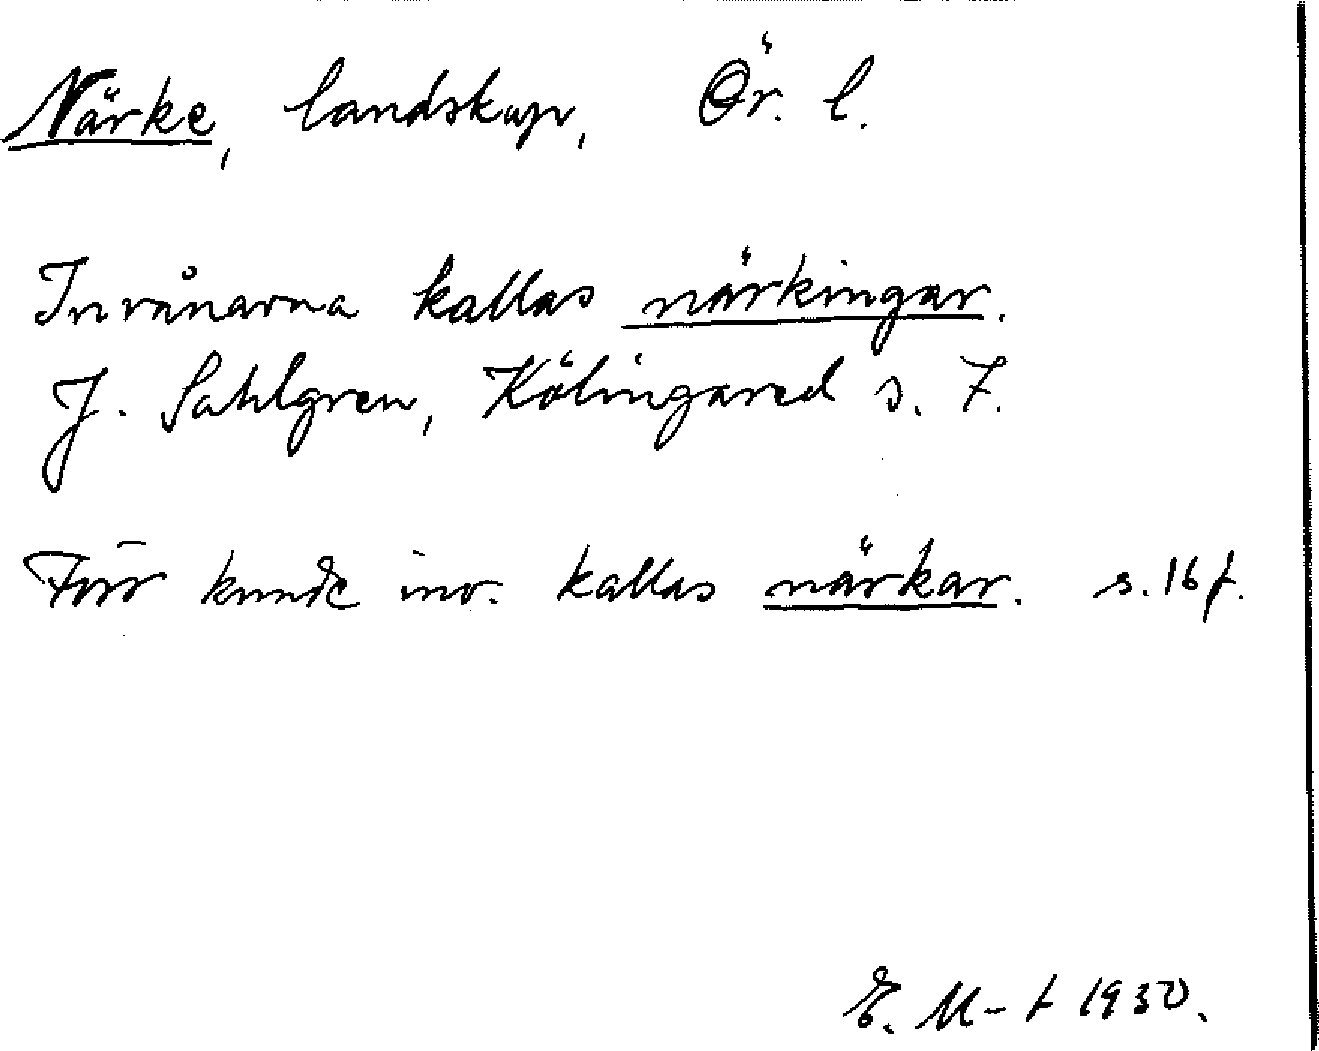 Närke, landskap, Ör. l.
Invånarna kallas närkingar.
J. Sahlgren, Kölingared s. 7.
Förr kunde inv. kallas närkar. s. 16 f.
E. M-t 1930.